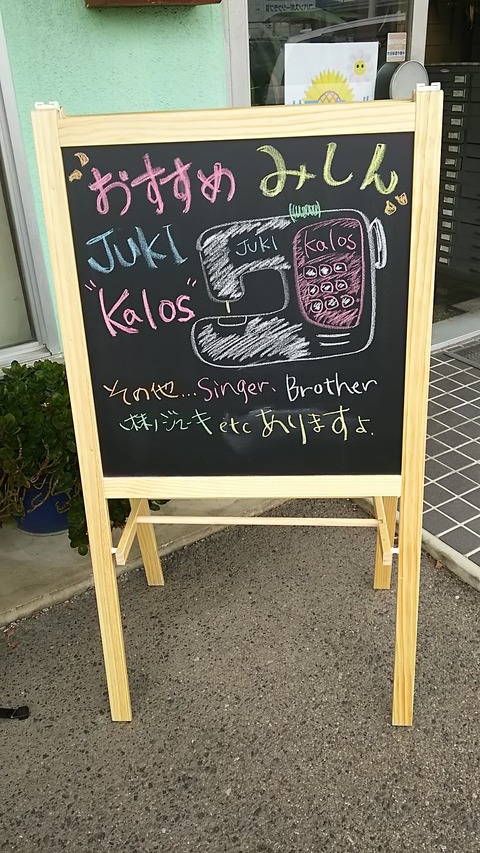 おすすめ みしん
JUKI
"Kalos"
JUKI
Kalos
その他...Singer、Brother
(株)ジューキ etc ありますよ.